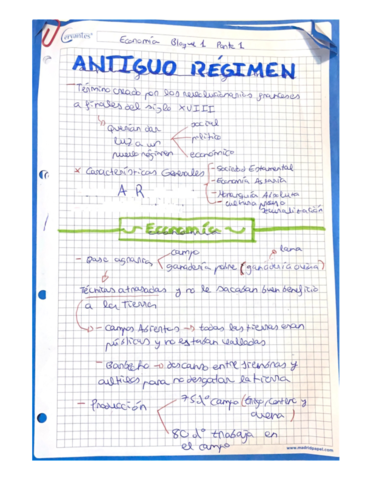 Cervantes
Economía Bloque 1 Parte 1
ANTIGUO RÉGIMEN
- Término creado por los revolucionarios franceses
a finales del siglo XVIII
Querían dar luz a un nuevo régimen
social
político
económico
* Características Generales
A R
- Sociedad Estamental
- Economía Agraria
- Monarquía Absoluta
- cultura
Economía
- Base agraria
campo
ganadería pobre (ganadería ovina)
lana
Técnicas atrasadas y no le sacaban buen beneficio
a la tierra
- Campos Abiertos → todas las tierras eran
públicas y no estaban valladas
- Barbecho → descanso entre siembras y
cultivos para no desgastar la tierra
- Producción
75% campo (trigo, centeno y
avena)
80% trabaja en
el campo
www.madridpapel.com